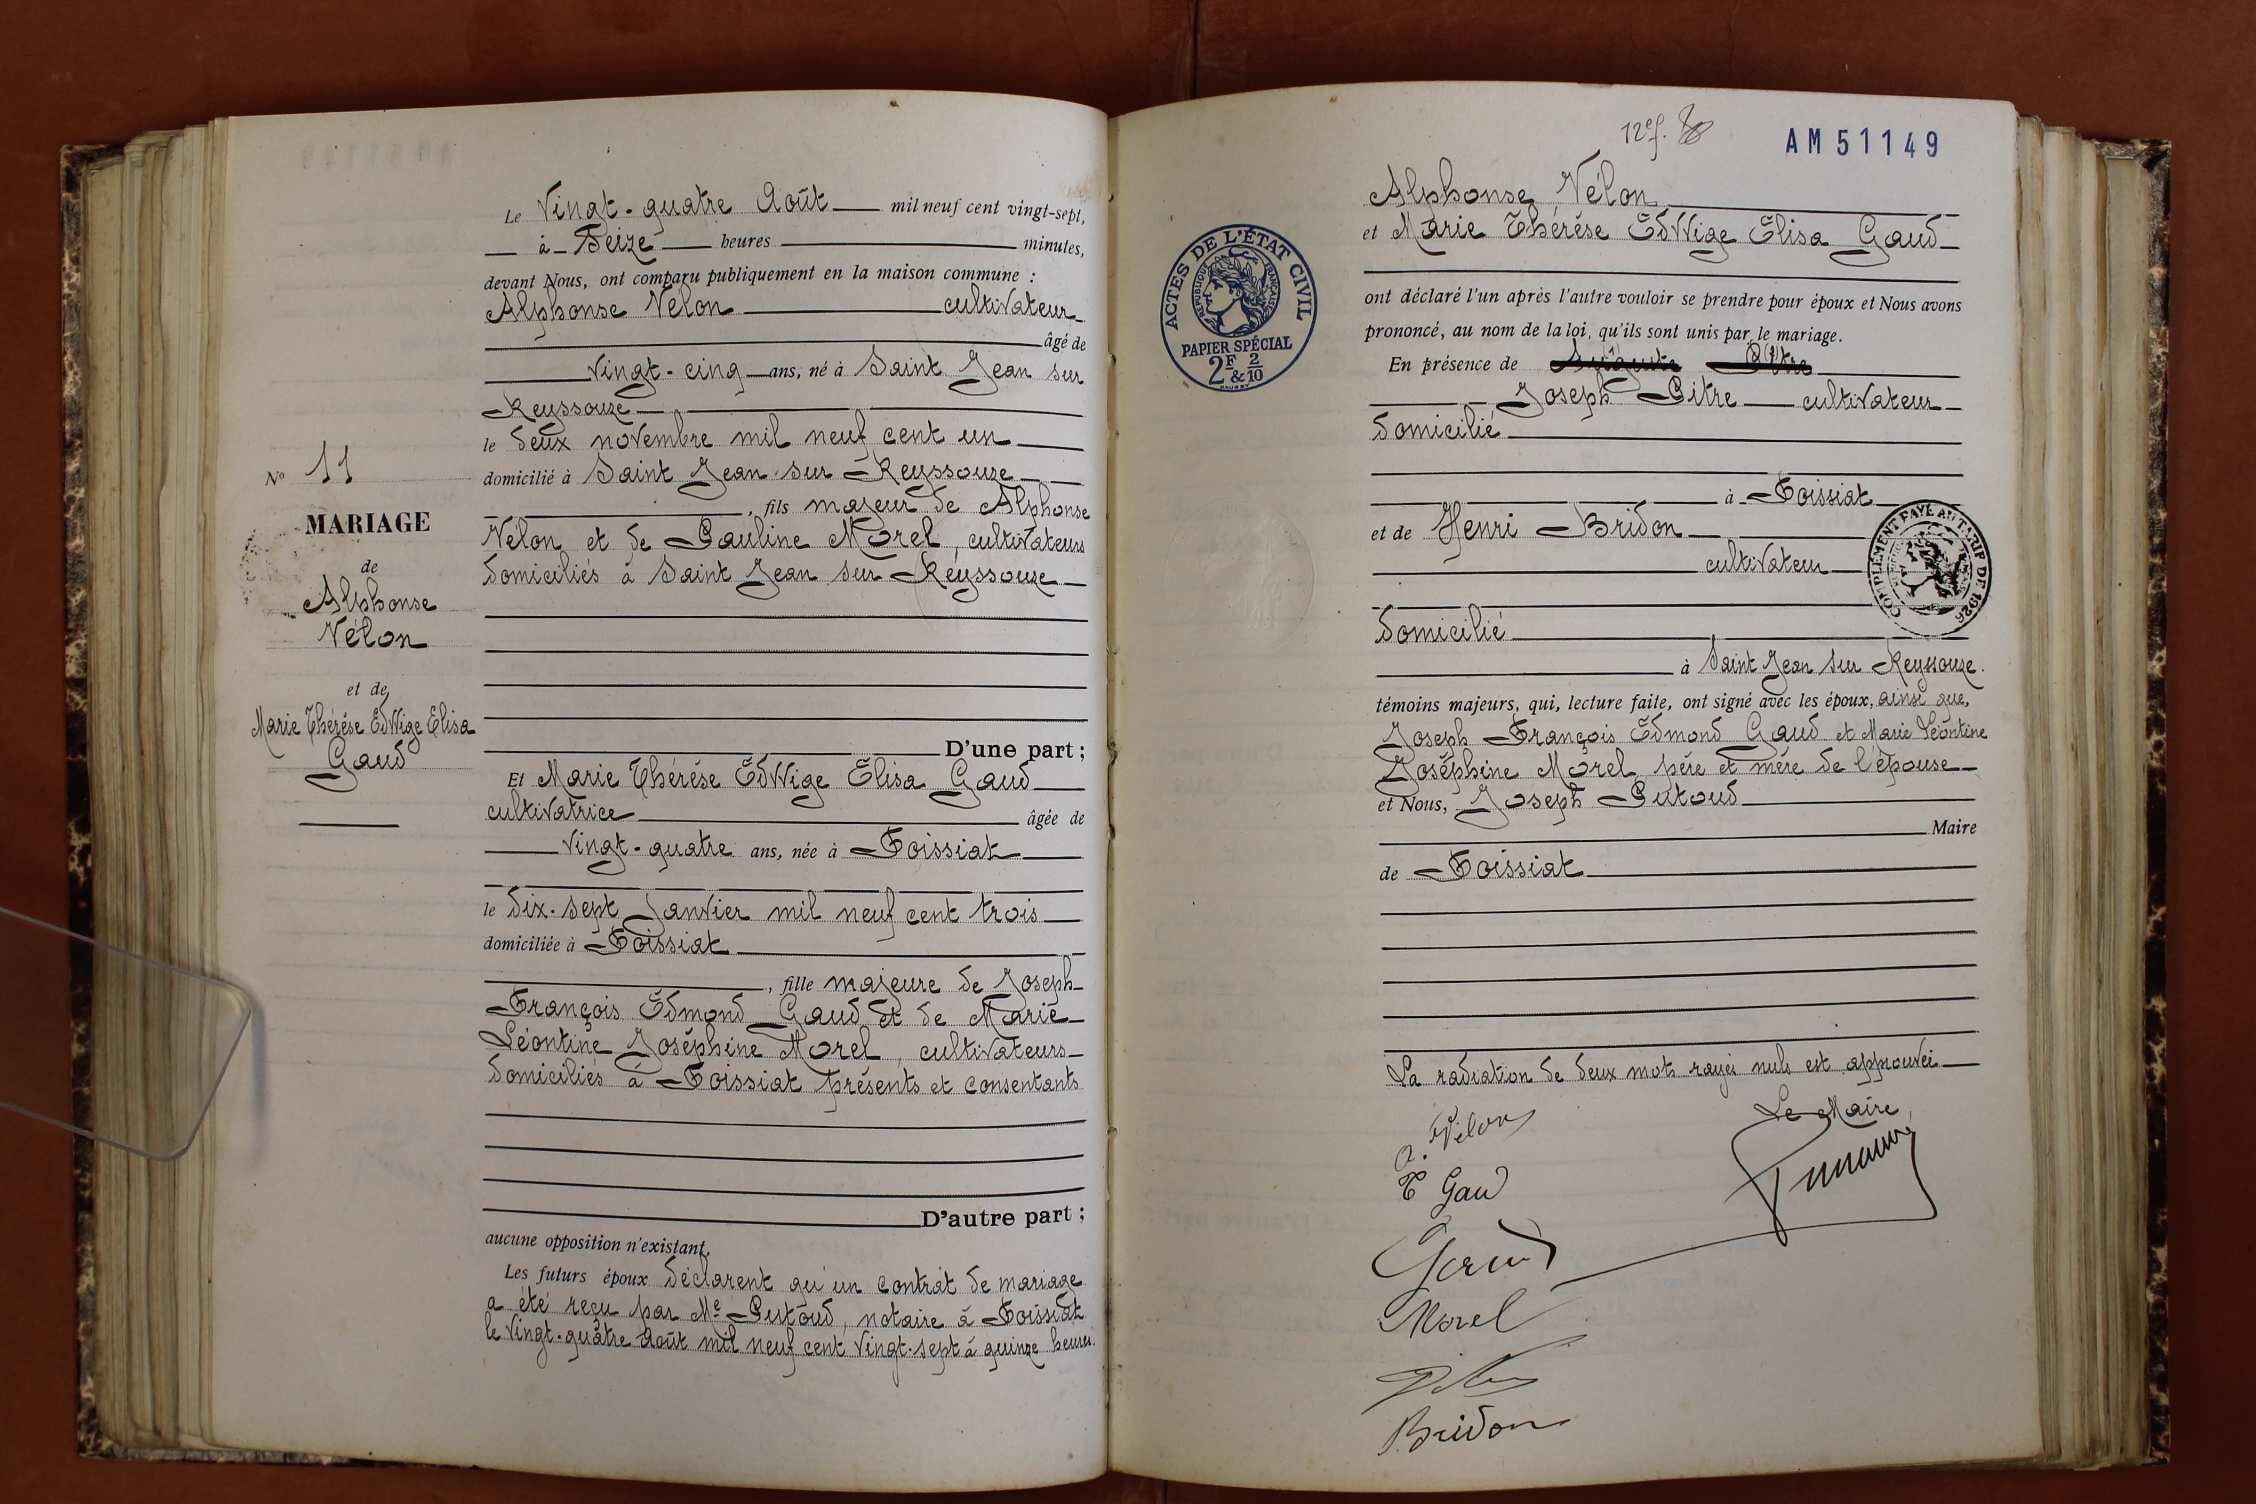 Le Vingt-quatre Août mil neuf cent vingt-sept,
à Seize heures minutes,
devant Nous, ont comparu publiquement en la maison commune :
Alphonse Vélon cultivateur
âgé de
vingt-cinq ans, né à Saint Jean sur
Reyssouze
le deux novembre mil neuf cent un
domicilié à Saint Jean sur Reyssouze
, fils majeur de Alphonse
Vélon et de Pauline Morel, cultivateurs
domiciliés à Saint Jean sur Reyssouze
No 11
MARIAGE
de
Alphonse
Vélon
et de
Marie Thérèse Edwige Elisa
Gaud
D'une part ;
Et Marie Thérèse Edwige Elisa Gaud
cultivatrice âgée de
vingt-quatre ans, née à Foissiat
le dix-sept Janvier mil neuf cent trois
domiciliée à Foissiat
, fille majeure de Joseph
François Edmond Gaud et de Marie
Léontine Joséphine Morel, cultivateurs
domiciliés à Foissiat présents et consentants
D'autre part ;
aucune opposition n'existant.
Les futurs époux déclarent qu'un contrat de mariage
a été reçu par Me Putoud, notaire à Foissiat
le vingt-quatre Août mil neuf cent vingt-sept à quinze heures.
12 ef.
AM 51149
Alphonse Vélon
et Marie Thérèse Edwige Elisa Gaud
ACTES DE L'ÉTAT CIVIL
RÉPUBLIQUE FRANÇAISE
PAPIER SPÉCIAL
2F & 2/10
ont déclaré l'un après l'autre vouloir se prendre pour époux et Nous avons
prononcé, au nom de la loi, qu'ils sont unis par le mariage.
En présence de
Joseph Pitre cultivateur
domicilié
à Foissiat
et de Henri Bridon
cultivateur
COMPLÉMENT PAYÉ AU TARIF DE 1926
domicilié
à Saint Jean sur Reyssouze.
témoins majeurs, qui, lecture faite, ont signé avec les époux, ainsi que,
Joseph François Edmond Gaud et Marie Léontine
Joséphine Morel père et mère de l'épouse
et Nous, Joseph Putoud
Maire
de Foissiat
La radiation de deux mots rayés nuls est approuvée
Le Maire,
A. Vélon
T Gaud
Gaud
Morel
Pitre
Bridon